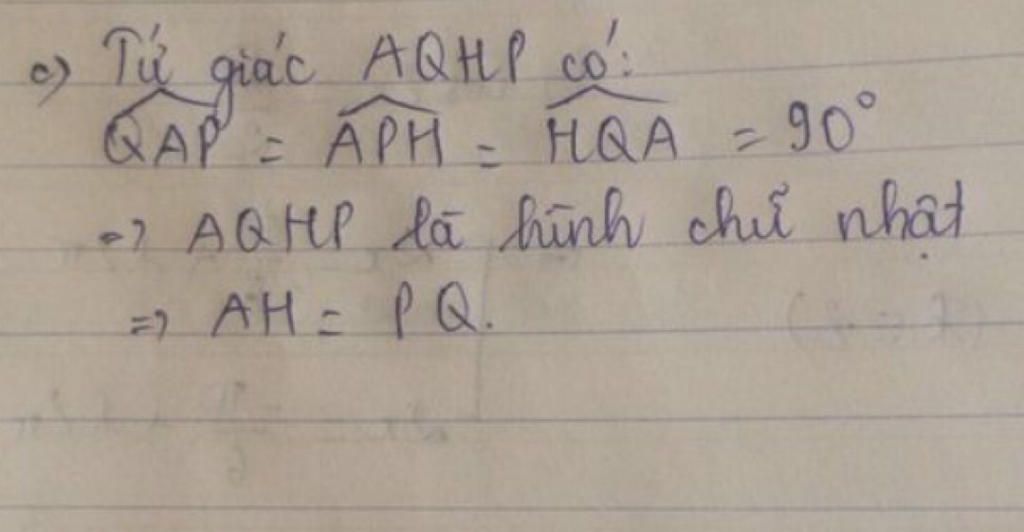 c) Tứ giác AQHP có:
\widehat{QAP} = \widehat{APH} = \widehat{HQA} = 90°
=> AQHP là hình chữ nhật
=> AH = PQ.